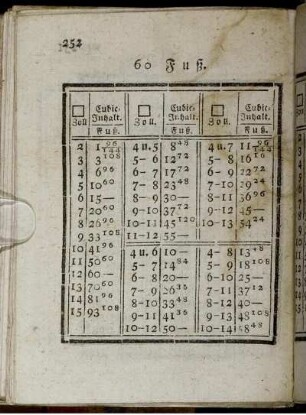 252
60 Fuß.
□ Zoll
Cubic-Inhalt.
Fuß.
2 1 96/144
3 3 108
4 6 96
5 10 60
6 15 —
7 20 60
8 26 96
9 33 108
10 41 96
11 50 60
12 60 —
13 70 60
14 81 96
15 93 108
□ Zoll.
Cubic-Inhalt.
Fuß.
4 u. 5 8 48
5 – 6 12 72
6 – 7 17 72
7 – 8 23 48
8 – 9 30 —
9 – 10 37 72
10 – 11 45 120
11 – 12 55 —
4 u. 6 10 —
5 – 7 14 84
6 – 8 20 —
7 – 9 26 36
8 – 10 33 48
9 – 11 41 36
10 – 12 50 —
□ Zoll.
Cubic-Inhalt.
Fuß.
4 u. 7 11 96/144
5 – 8 16
6 – 9 22 72
7 – 10 29 24
8 – 11 36 96
9 – 12 45 —
10 – 13 54 24
4 – 8 13 48
5 – 9 18 108
6 – 10 25 —
7 – 11 32 12
8 – 12 40 —
9 – 13 48 108
10 – 14 58 48